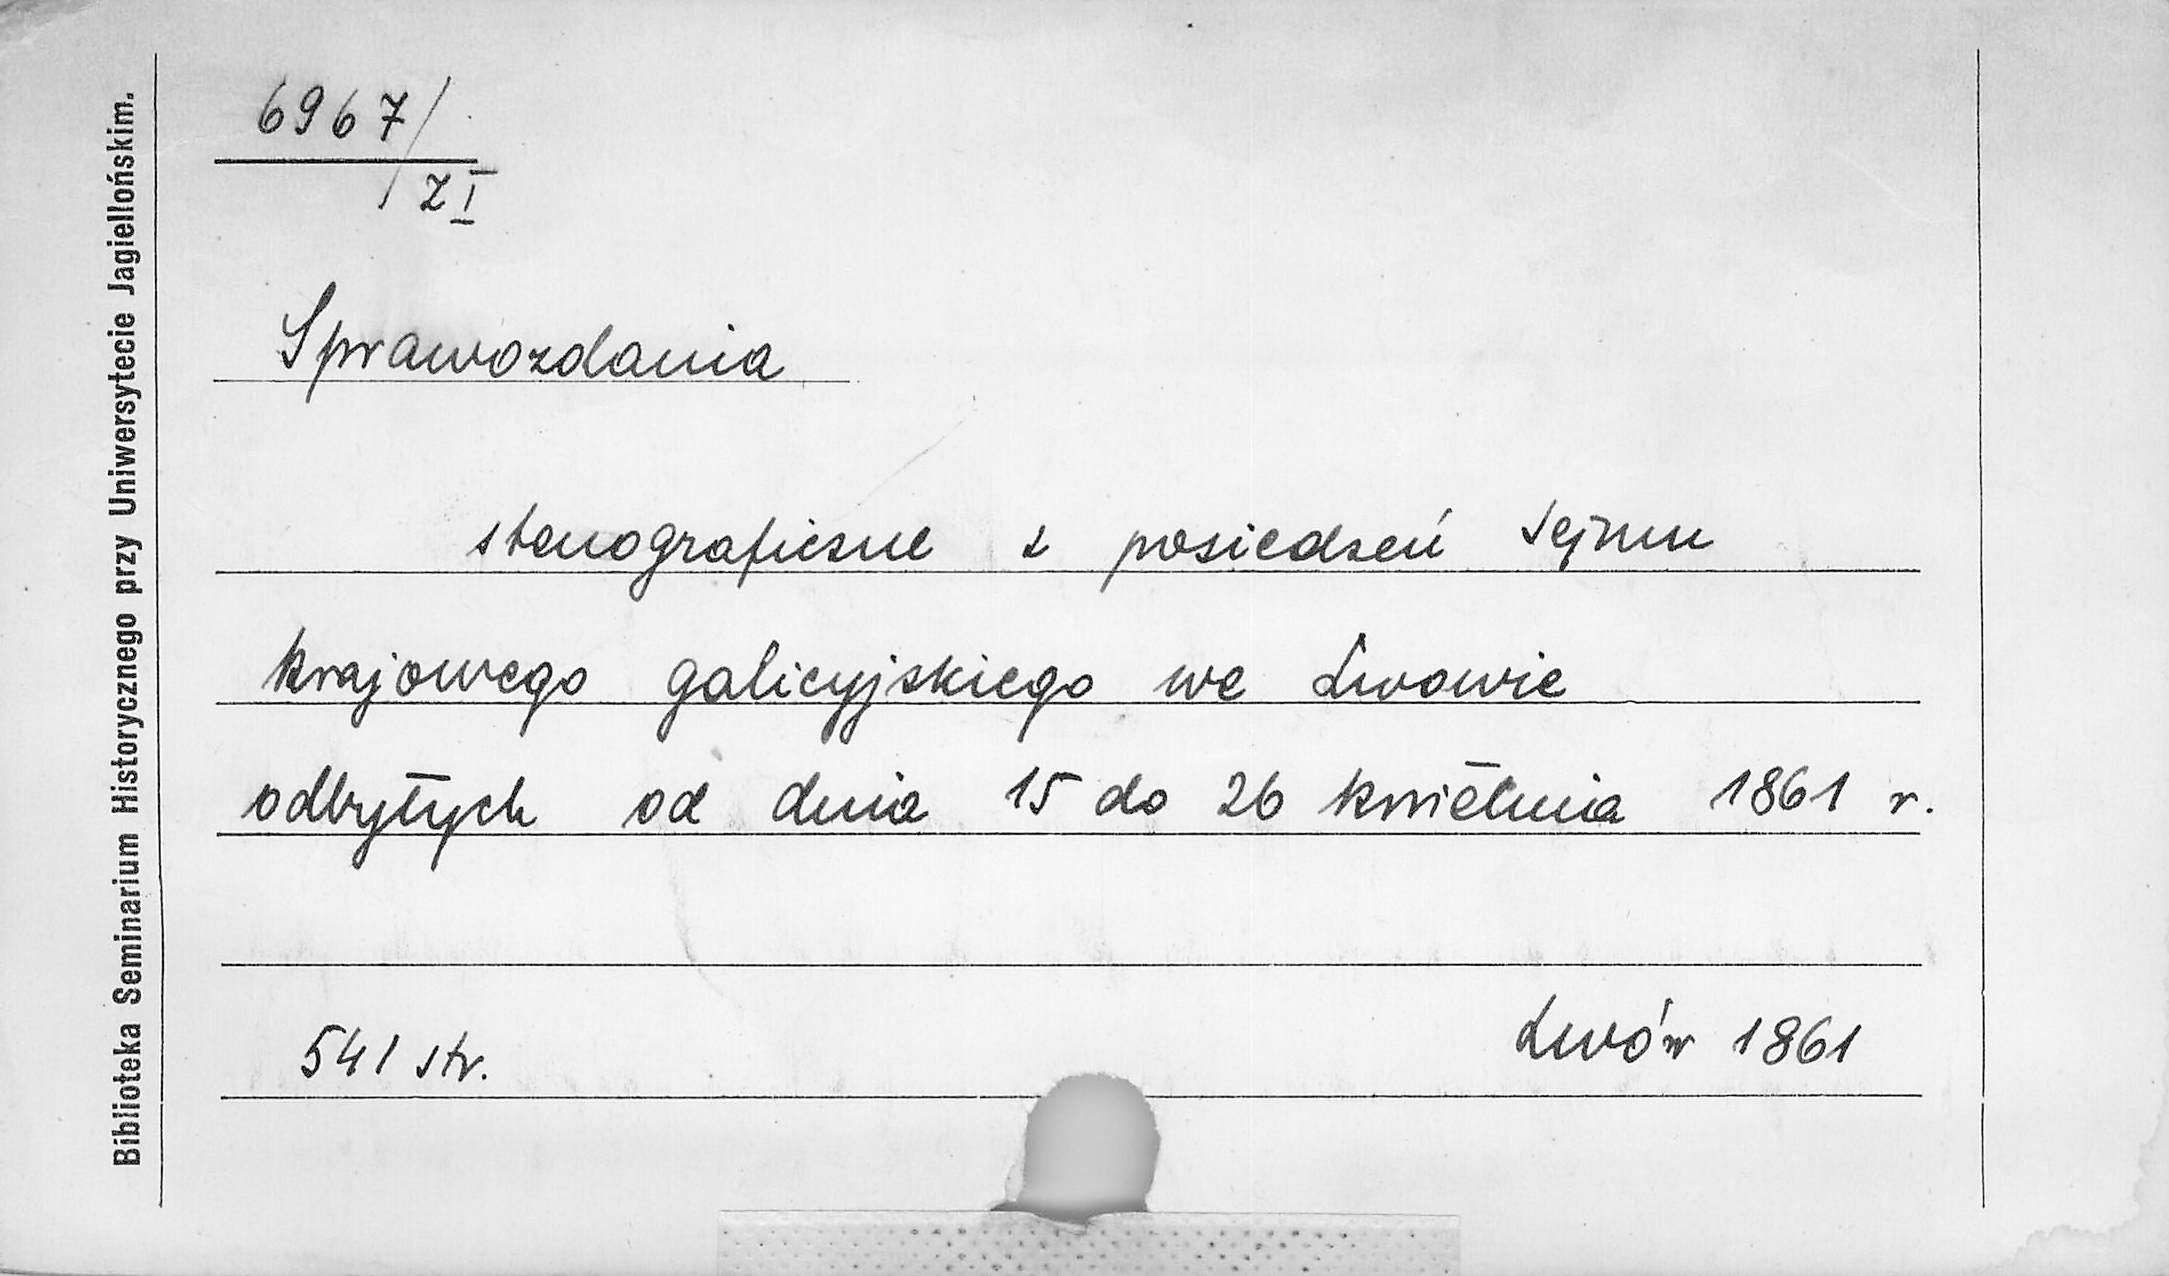 6967/
Z I
Sprawozdania
stenograficzne z posiedzeń Sejmu
krajowego galicyjskiego we Lwowie
odbytych od dnia 15 do 26 kwietnia 1861 r.
541 str.
Lwów 1861
Biblioteka Seminarium Historycznego przy Uniwersytecie Jagiellońskim.